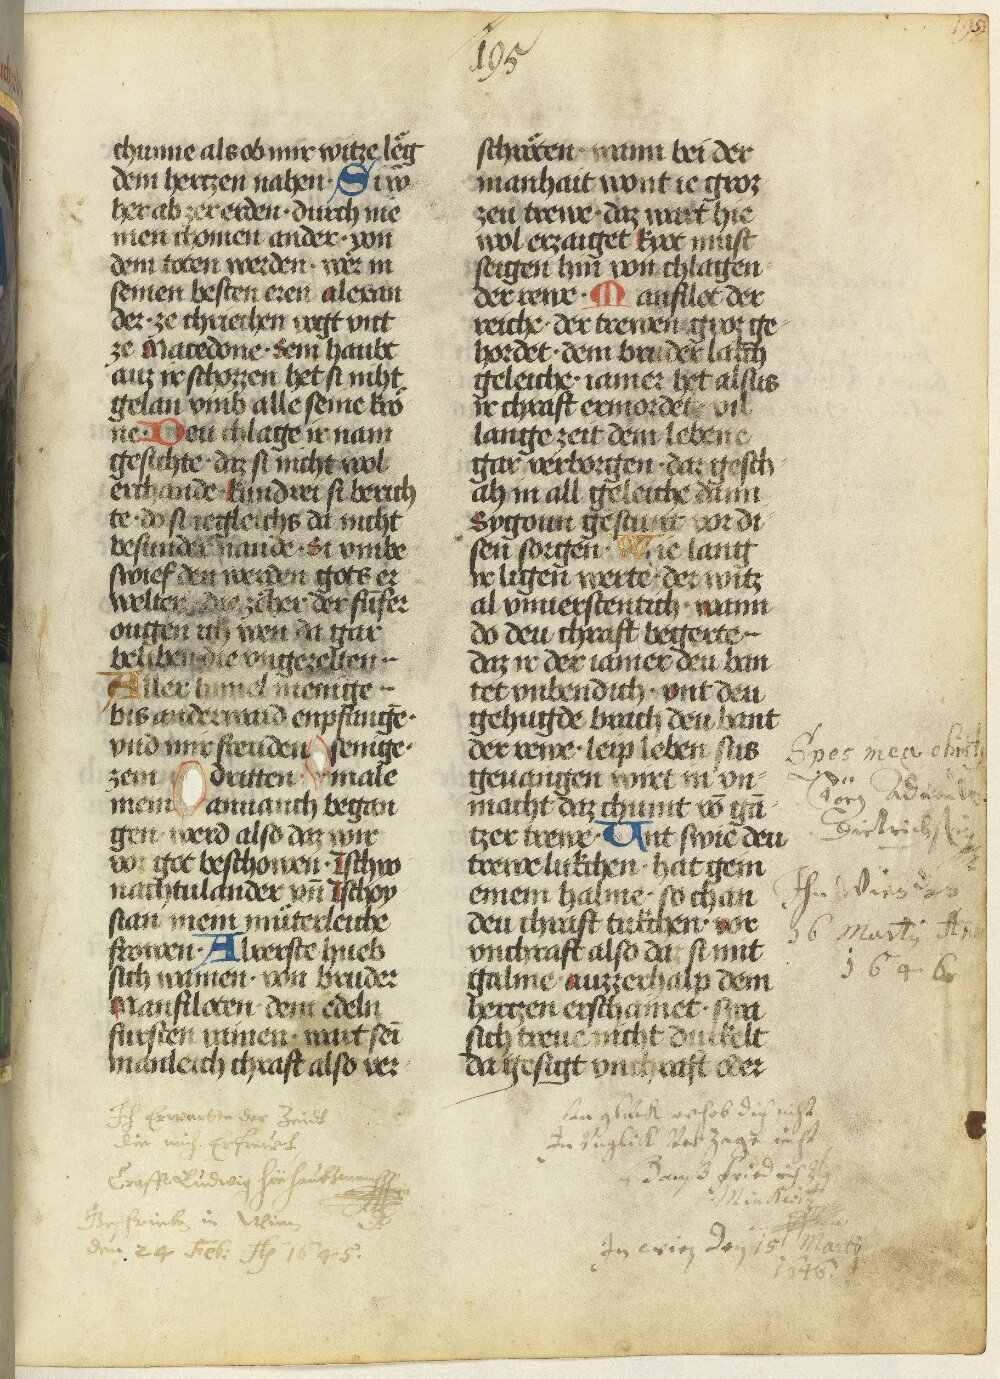 195
195
chunne als ob mir witze leͤg
dem hertzen nahen· Si ẃ
her ab zer erden· durch nie
men chomen ander· von
dem toten werden· wer in
seinen besten eren alexan
der· ze chriechen vogt vnt
ze Macedone· Sein haubt
auz ir schozzen het si niht
gelan vmb alle seine kro
ne· Deu chlage ir nam
gesichte· daz si nicht wol
erchande· kundrei si berich
te· do si iegleichs da nicht
besunder nande· Si vmbe
swief den werden gots er
welten· die zeher der fünfer
ougen
beliben die vngezelten
Aller himel menige
bis anderwaid enpfange·
vnd mir freuden senige·
zem dritten male
mein anuanch began
gen· werd also daz wir
vor got beschowen· Tschio
nachtulander vn̄ Tschoy
sian mein müterleiche
frowen· Alrerste hueb
sich iamen· von bruder
Manfiloten· dem edeln
fursten wart sein
manleich chraft also ver
schroten· wann bei der
manhait wont ie groz
zeu trewe· daz wart hie
wol erzaiget must
seigen hin von chlagen
der rewe· Manfilot der
reiche· der trewen groz ge
hordet· dem bruder
geleiche· iamer het alsus
ir chraft ermordet· vil
lange zeit dem lebene
gar verborgen· daz gesch
ah in all geleiche dann
Sygoun gestunt vor di
sen sorgen· Wie lang
ir ligen werte· der witz
al vnuerstentich· wann
do deu chraft begerte
daz ir der iamer deu ban
tet vnbendich· vnt deu
gehugde brach deu bant
der rewe· leip leben sus
geuangen wirt in vn
macht daz chumt vō gā
tzer trewe· Vnt swie deu
trewe lukchen· hat gein
einem halme· so chan
deu chraft tukchen· vor
vnchraft also daz si mit
galme· auzzerhalp dem
hertzen erschainet· swa
sich treue nicht duckelt
da gesigt vnchraft ober
Spes mea christus
Jörg
Dietrich
Jn Wien den
16 Martij Aō
1646
Ich Erwartte der Zeidt
die mich Erfreut
Crafft Ludwig
Geschrieben in Wien
den 24 Feb: Aō 1645.
Im glück erheb dich nicht
In Vnglück Verzage nicht
Friedrich
In wien Den 15 Marty
1646.